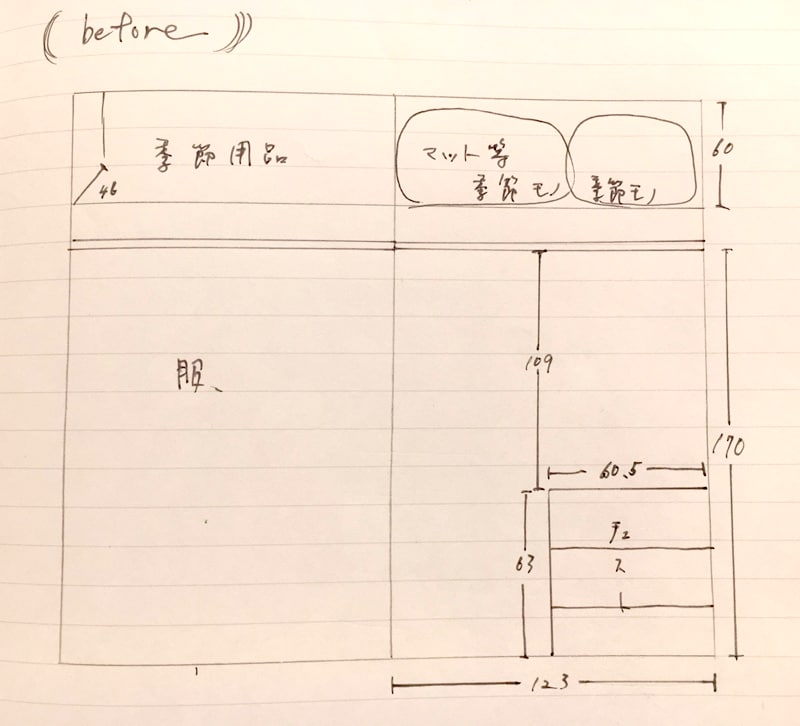 ((before)))
季節用品
マット等
季節モノ
季節モノ
60
46
109
服
170
60.5
63
チェ
ス
ト
123